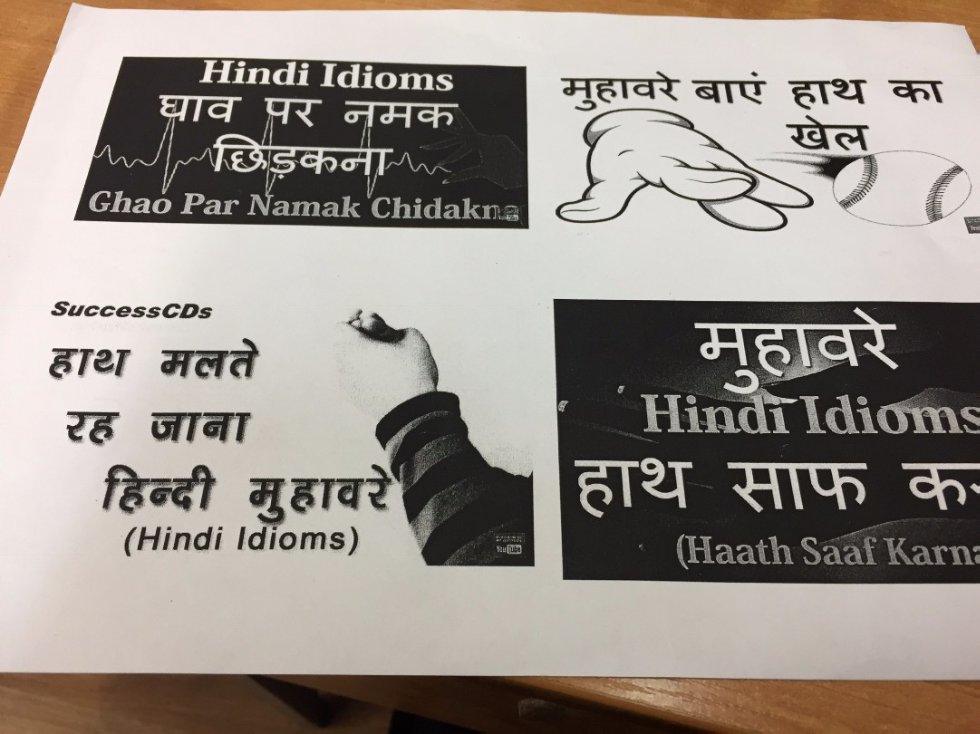 Hindi Idioms
घाव पर नमक
छिड़कना
Ghao Par Namak
मुहावरे बाएं हाथ का
खेल
SuccessCDs
हाथ मलते
रह जाना
हिन्दी मुहावरे
(Hindi Idioms)
YouTube
मुहावरे
Hindi Idioms
हाथ साफ
(Haath Saaf